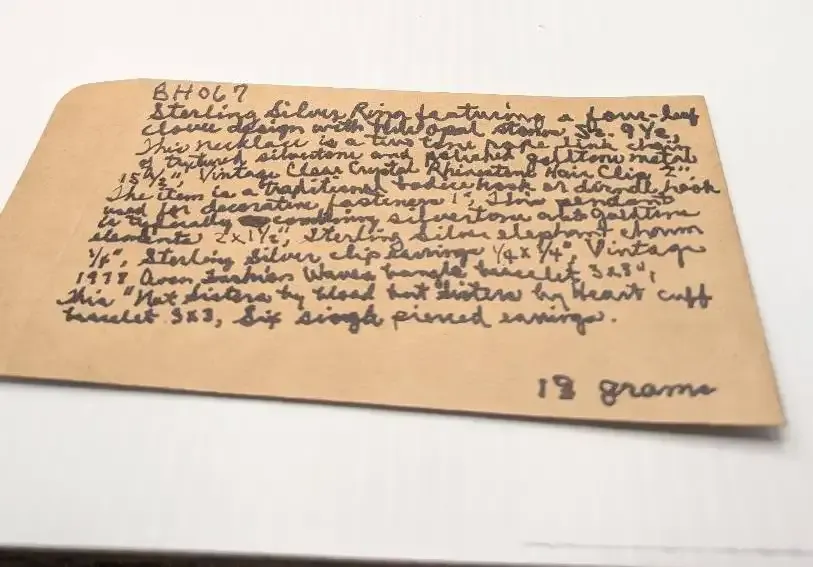 BH067
Sterling Silver Ring featuring a four-leaf
clover design with opal stones Sz. 9 1/2,
This necklace is a two tone rope link chain
of textured silvertone and polished goldtone metal
15 1/2", Vintage Clear Crystal Rhinestone Hair Clip 2",
The item is a traditional bodice hook or dirndl hook
used for decorative fasteners 1", This pendant
is typically combining silvertone and goldtone
elements 2 x 1 1/2", Sterling Silver elephant charm
1/8", Sterling Silver clip Earrings 1/4 x 1/4", Vintage
1978 Avon Fashion Waves bangle bracelet 3x3",
This "Not Sisters by blood but Sisters by Heart cuff
bracelet 3x3, Six single pierced earrings.
18 grams